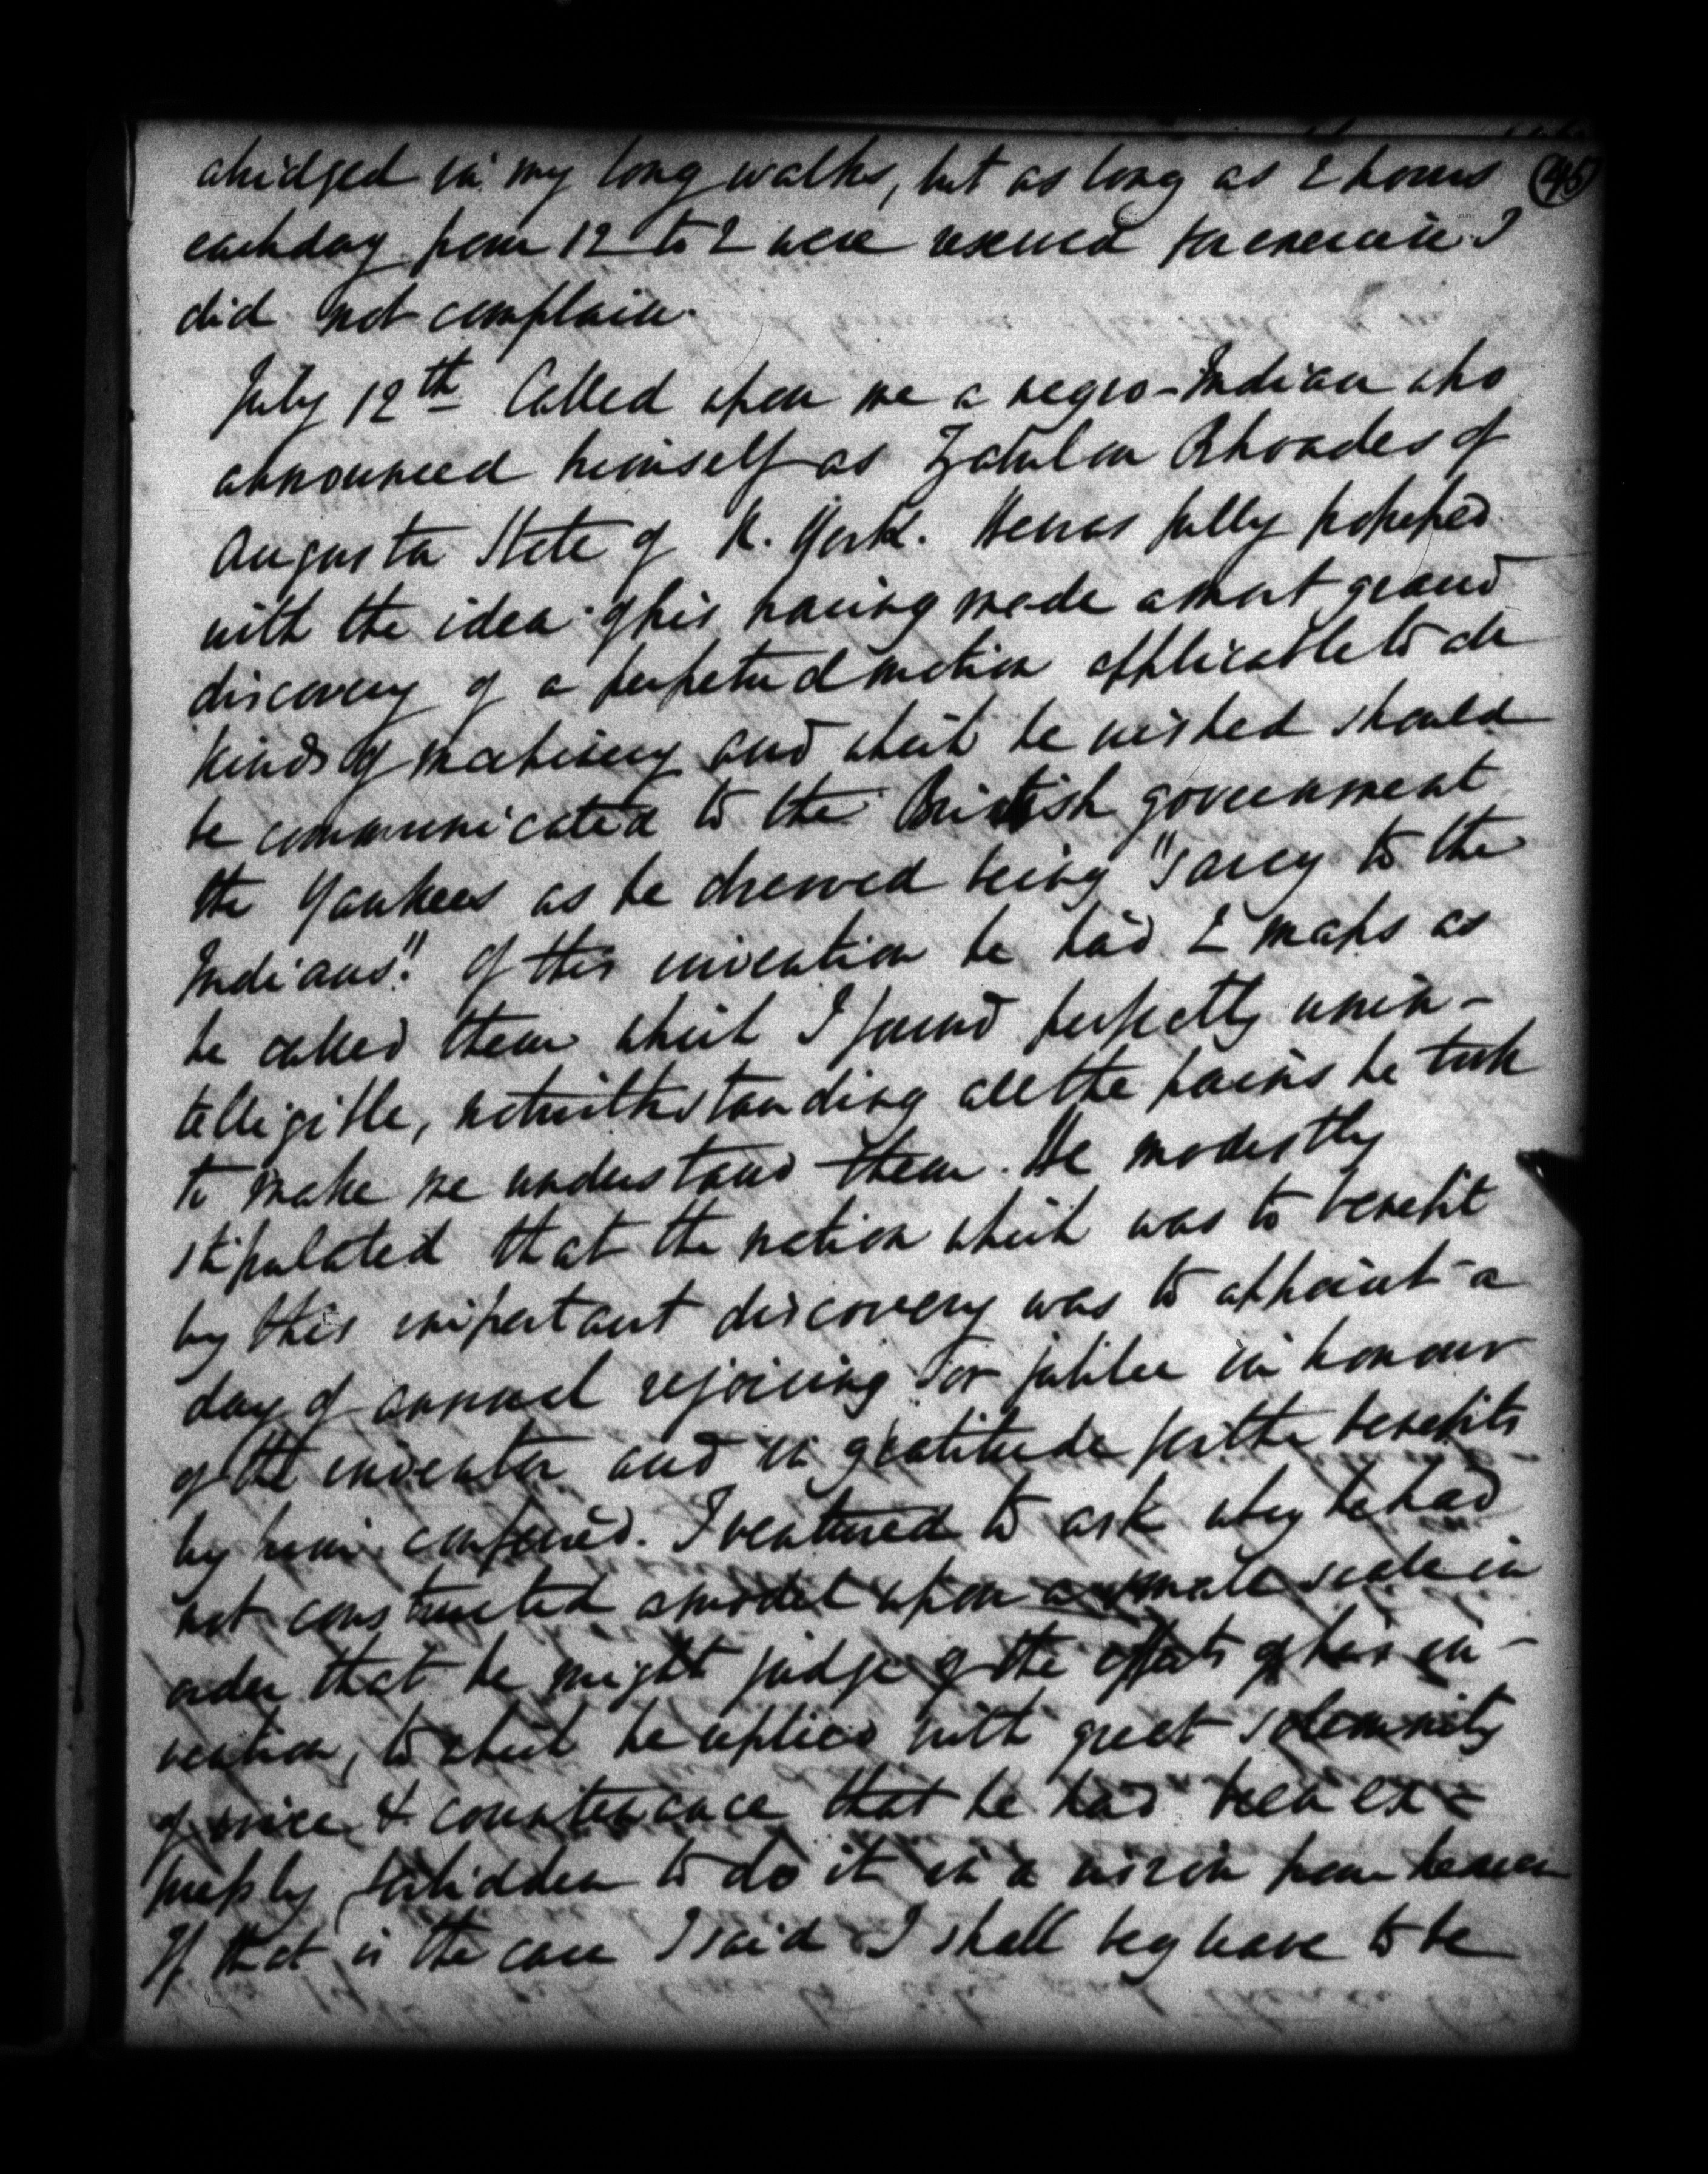 abridged in my long walks, but as long as 2 hours (45)
each day from 12 to 2 were reserved for exercise I
did not complain.
July 12th Called upon me a negro-Indian who
announced himself as Zabulon Rhoades of
Augusta State of N. York. He was fully possessed
with the idea of his having made a most grand
discovery of a perpetual motion applicable to all
kinds of machinery and which he wished should
be communicated to the British government
the Yankees as he observed being "sarcy to the
Indians". Of this invention he had 2 maps as
he called them which I found perfectly unin-
telligible, notwithstanding all the pains he took
to make me understand them. He modestly
stipulated that the nation which was to benefit
by this important discovery was to appoint a
day of annual rejoicing or jubilee in honour
of the inventor and in gratitude for the benefits
by him conferred. I ventured to ask why he had
not constructed a model upon a small scale in
order that he might judge of the effects of his in-
vention, to which he replied with great solemnity
of voice & countenance that he had been ex-
pressly forbidden to do it in a vision from heaven
If that is the case I said I shall beg leave to be